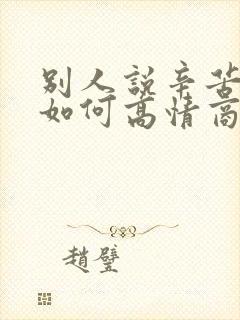 别人說辛苦
如何高情商
趙璧